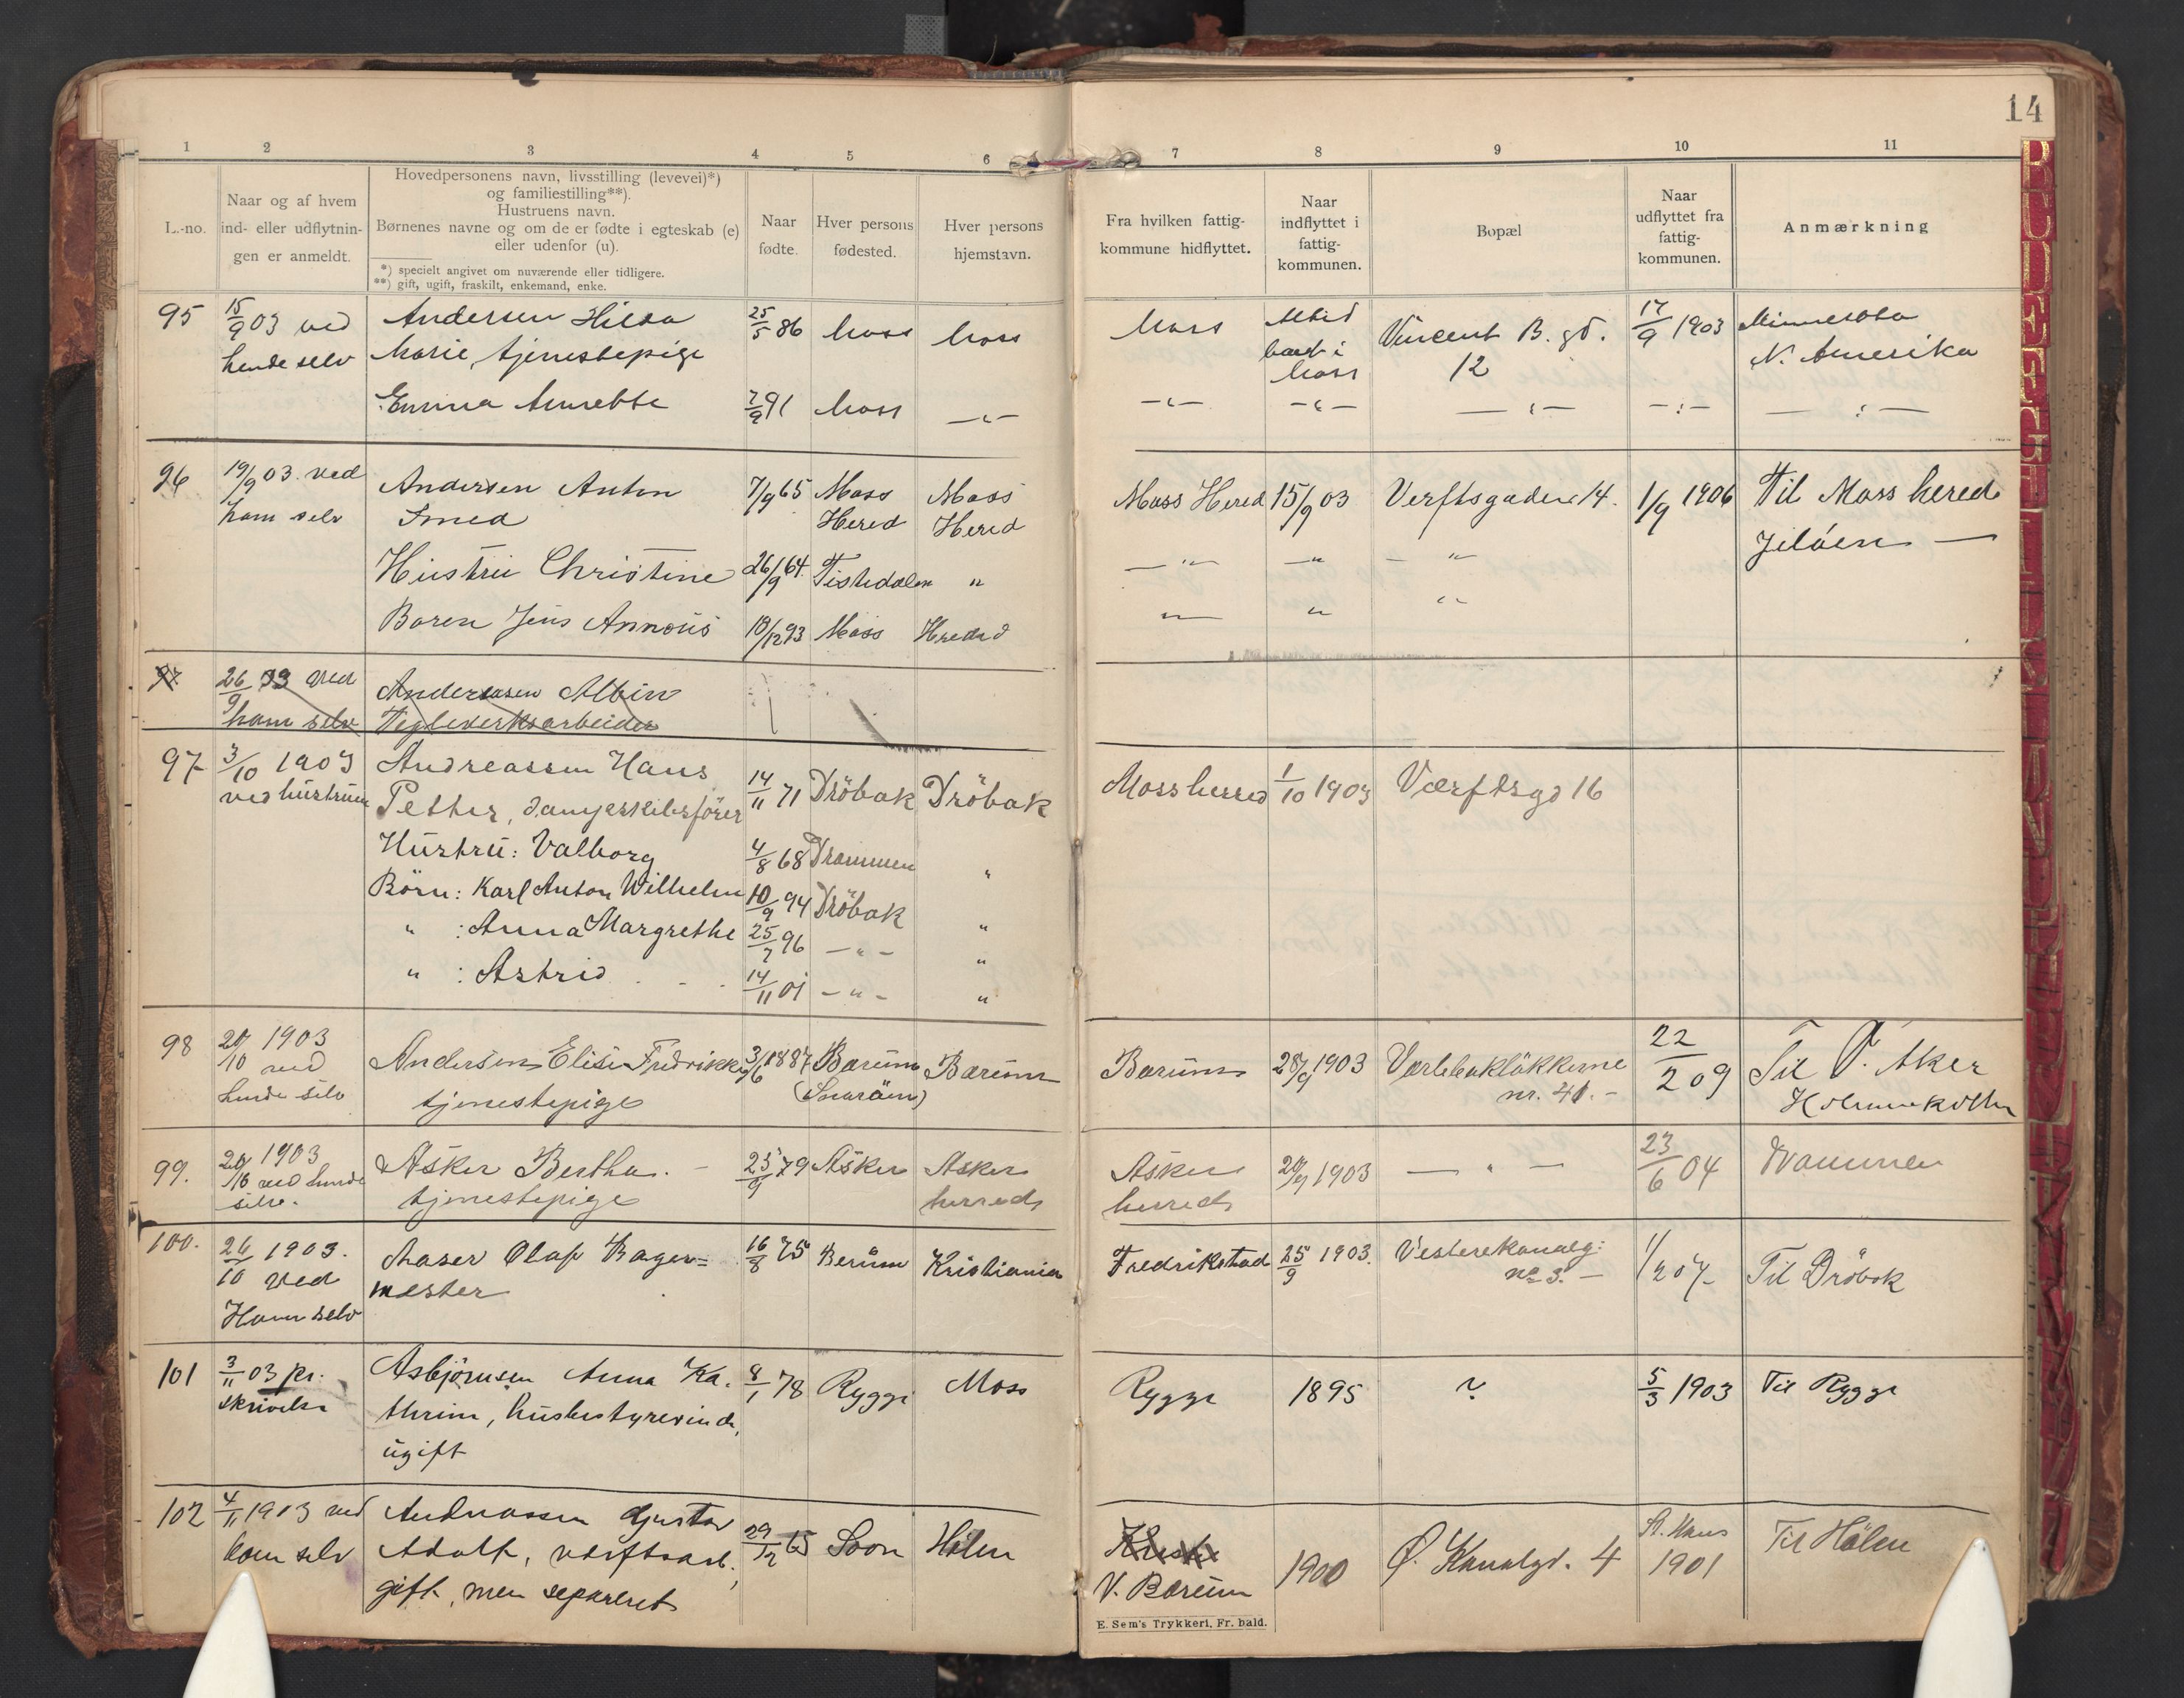 14
1 2 3 4 5 6 7 8 9 10 11
L.-no.
Naar og af hvem
ind- eller udflytnin-
gen er anmeldt.
Hovedpersonens navn, livsstilling (levevei)*)
og familiestilling**).
Hustruens navn.
Børnenes navne og om de er fødte i egteskab (e)
eller udenfor (u).
*) specielt angivet om nuværende eller tidligere.
**) gift, ugift, fraskilt, enkemand, enke.
Naar
fødte.
Hver persons
fødested.
Hver persons
hjemstavn.
Fra hvilken fattig-
kommune hidflyttet.
Naar
indflyttet i
fattig-
kommunen.
Bopæl
Naar
udflyttet fra
fattig-
kommunen.
Anmærkning
95 15/9 03 ved Andersen Hilda 25/5 86 Moss Moss Moss Altid Vincent B. gd. 17/9 1903 Minnesota
hende selv Marie, tjenestepige boet i 12 N. Amerika
Moss
Emma Annette 7/9 91 Moss —"— —"— —"— —"— —"— —"—
96 19/9 03 ved Andersen Anton 7/9 65 Moss Moss Moss Hered 15/9 03 Verftsgaden 14. 1/9 1906 Til Moss hered
ham selv Smed Hered Hered Jelöen —
Hustru Christine 26/9 64. Tistedalen " —"— —" — "
Baren Jens Annæus 10/12 93 Moss Hered —"— " "
97. 26/9 03 ved Andreasen Albin
ham selv Teglverksarbeider
97 3/10 1903 Andreassen Hans 14/11 71 Dröbak Dröbak Moss herred 1/10 1903 Værftsgd 16
ved hustruen Petter, dampskibsfører
Hustru: Valborg 4/8 68 Drammen "
Börn: Karl Anton Wilhelm 10/9 94 Dröbak "
" : Anna Margrethe 25/7 96 —"— "
" : Astrid 14/11 01 —"— "
98 20/10 1903 Andersen Elise Fredrikke 3/6 1887 Bærum Bærum Bærum 28/9 1903 Værlebukløkkerne 22/2 09 Til V. Aker
ved tjenestepige (Snarøen) nr. 41.– Holmenkollen
hende selv
99. 20/10 1903 Asker Bertha. – 25/9 79 Asker Asker Asker 20/9 1903 — " — 23/6 04 Drammen
ved hende tjenestepige herred herred
selv.
100. 26/10 1903. Aaser Olaf Bager= 16/8 75 Berum Kristiania Fredrikstad 25/9 1903. Vestrekanalg: 1/2 07– Til Dröbak
ved mester no 3. –
Ham selv
101 3/11 03 pr. Asbjörnsen Anna Ka- 8/1 78 Rygge Moss Rygge 1895 ? 5/3 1903 Til Rygge
skrivelse thrine, husbestyrerinde,
ugift
102 4/11 1903 ved Andreassen Gustav 29/12 65 Soon Hölen 1900 Ø. Kanalgd. 4 St. Hans Til Hölen
ham selv Adolf, værftsarb., V. Bærum 1901
gift, men separeret
E. Sem's Trykkeri, Fr. hald.